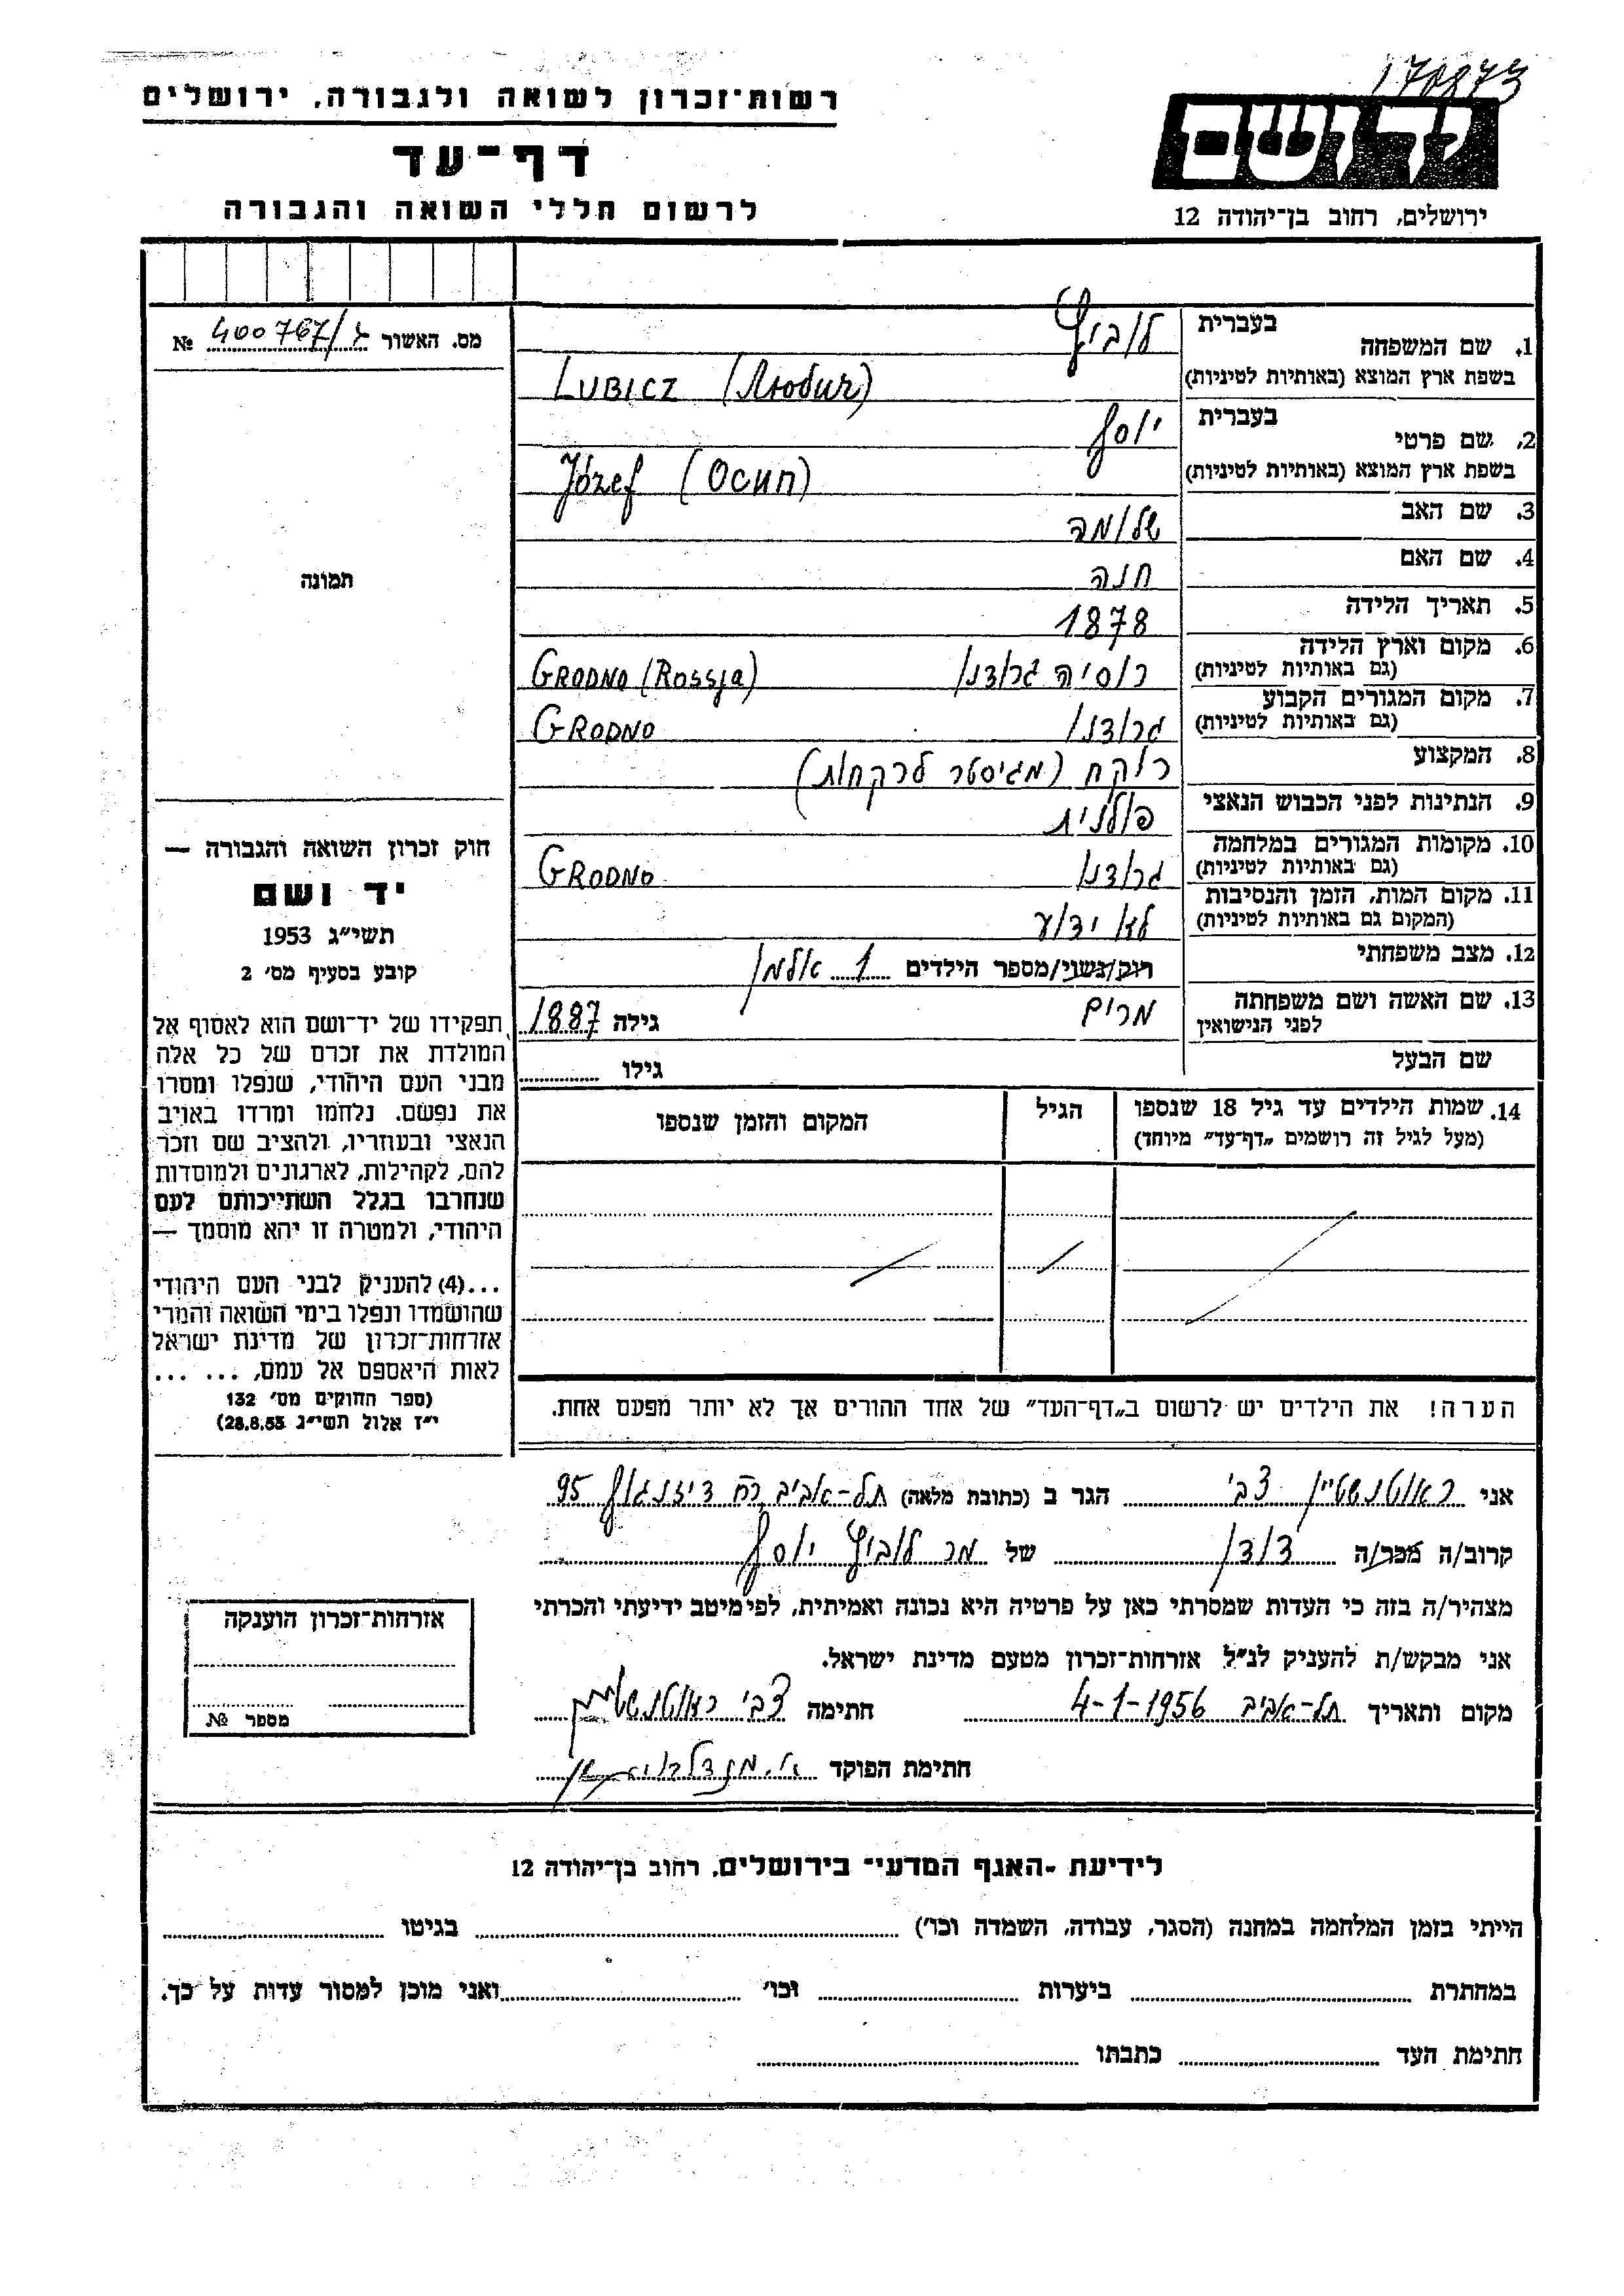 170873
רשות־זכרון לשואה ולגבורה, ירושלים
דף־עד
לרשום חללי השואה והגבורה
יד ושם
ירושלים, רחוב בן־יהודה 12
מס. האשור 400767/ג №
תמונה
חוק זכרון השואה והגבורה —
יד ושם
תשי״ג 1953
קובע בסעיף מס׳ 2
תפקידו של יד־ושם הוא לאסוף אל
המולדת את זכרם של כל אלה
מבני העם היהודי, שנפלו ומסרו
את נפשם. נלחמו ומרדו באויב
הנאצי ובעוזריו, ולהציב שם וזכר
להם, לקהילות, לארגונים ולמוסדות
שנחרבו בגלל השתייכותם לעם
היהודי, ולמטרה זו יהא מוסמך —
...(4) להעניק לבני העם היהודי
שהושמדו ונפלו בימי השואה והמרי
אזרחות־זכרון של מדינת ישראל
לאות היאספם אל עמם, ... ...
(ספר החוקים מס׳ 132
י״ז אלול תשי״ג 28.8.53)
1. שם המשפחה בעברית לוביץ
בשפת ארץ המוצא (באותיות לטיניות) LUBICZ (Любич)
2. שם פרטי בעברית יוסף
בשפת ארץ המוצא (באותיות לטיניות) Józef (Осип)
3. שם האב שלומה
4. שם האם חנה
5. תאריך הלידה 1878
6. מקום וארץ הלידה
(גם באותיות לטיניות) רוסיה גרודנו GRODNO (Rossja)
7. מקום המגורים הקבוע
(גם באותיות לטיניות) גרודנו GRODNO
8. המקצוע רוקח (מגיסטר לרקחות)
9. הנתינות לפני הכבוש הנאצי פולנית
10. מקומות המגורים במלחמה
(גם באותיות לטיניות) גרודנו GRODNO
11. מקום המות, הזמן והנסיבות
(המקום גם באותיות לטיניות) לא ידוע
12. מצב משפחתי רוק/נשוי/מספר הילדים 1 אלמן
13. שם האשה ושם משפחתה
לפני הנישואין מרים גילה 1887
שם הבעל גילו
14. שמות הילדים עד גיל 18 שנספו הגיל המקום והזמן שנספו
(מעל לגיל זה רושמים „דף־עד״ מיוחד)
הערה! את הילדים יש לרשום ב„דף־העד״ של אחד ההורים אך לא יותר מפעם אחת.
אני ראוטנשטיין צבי הגר ב (כתובת מלאה) תל-אביב רח דיזנגוף 95
קרוב/ה מכר/ה דודן של מר לוביץ יוסף
מצהיר/ה בזה כי העדות שמסרתי כאן על פרטיה היא נכונה ואמיתית, לפי מיטב ידיעתי והכרתי
אני מבקש/ת להעניק לנ״ל אזרחות־זכרון מטעם מדינת ישראל.
מקום ותאריך תל-אביב 4-1-1956 חתימה צבי ראוטנשטיין
חתימת הפוקד
אזרחות־זכרון הוענקה
מספר №
לידיעת ״האגף המדעי״ בירושלים, רחוב בן־יהודה 12
הייתי בזמן המלחמה במחנה (הסגר, עבודה, השמדה וכו׳) בגיטו
במחתרת ביערות וכו׳ ואני מוכן למסור עדות על כך.
חתימת העד כתבתו